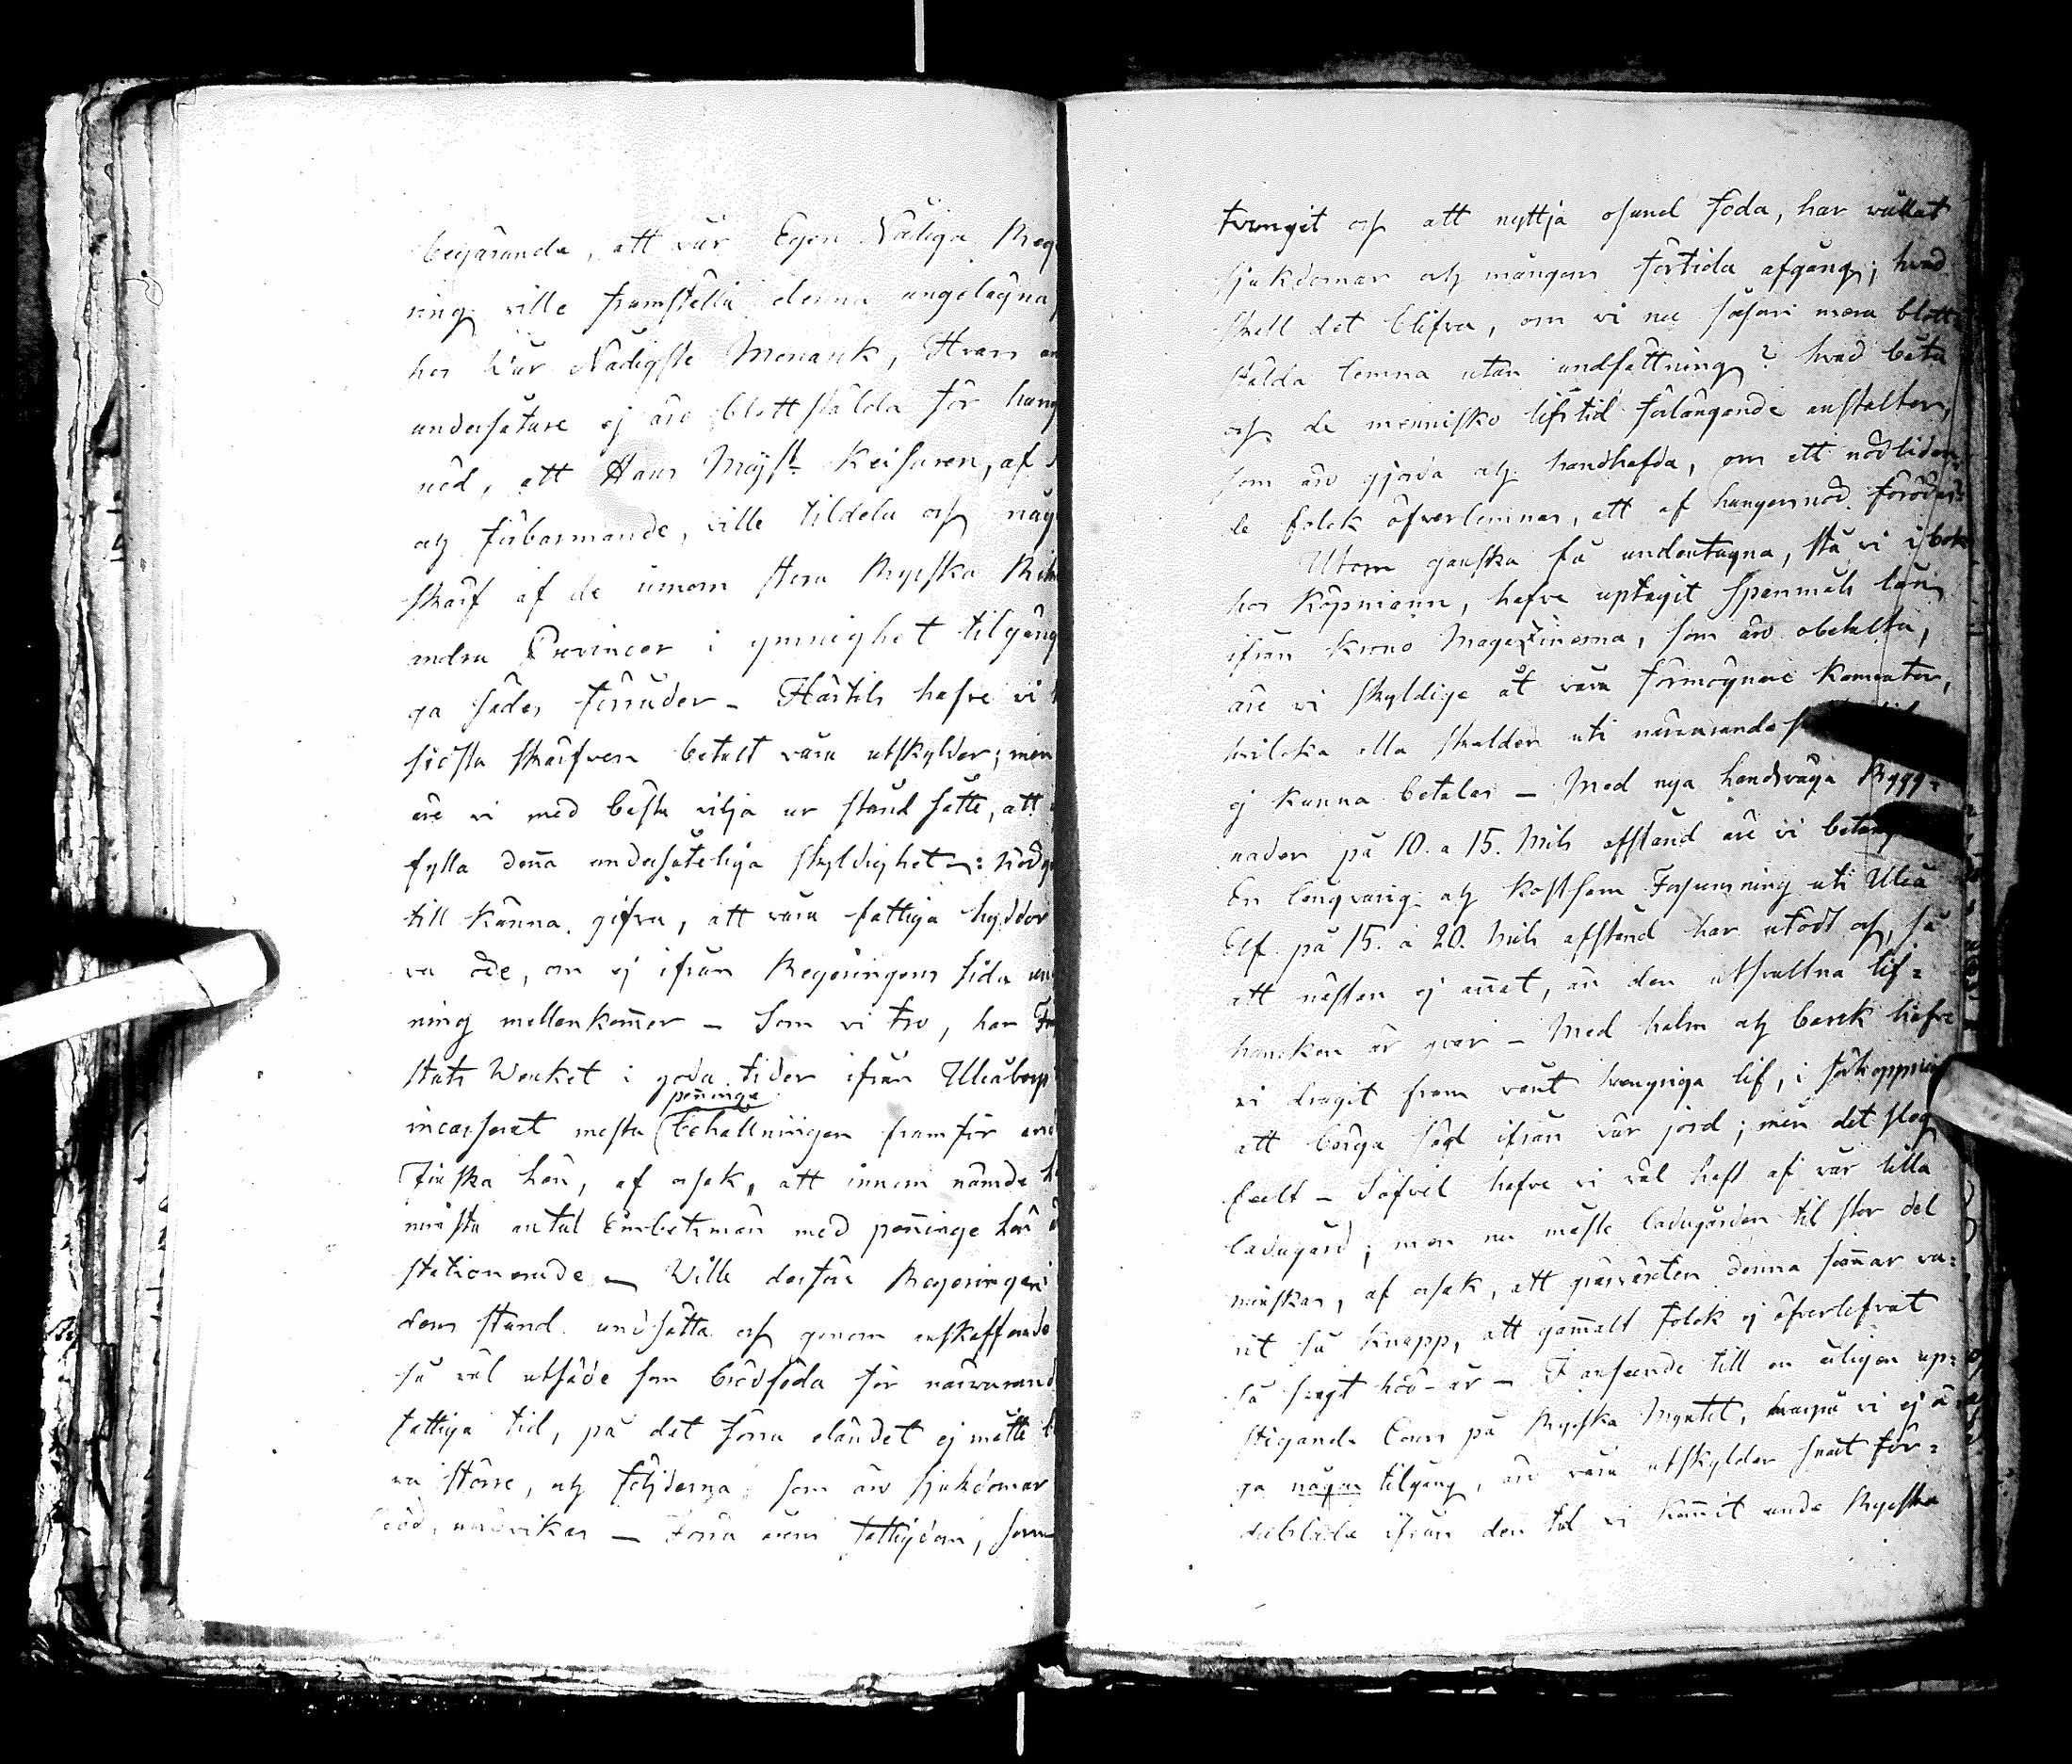 begärande, att vår Egen Nådiga Reg
ning ville framställa denna angelägna
hos Vår Nådigste Monark, Hvars
undersåtare ej äro blottstälda för hung
nöd, att Hans Majst. Keisaren, af
och förbarmande, ville tildela oss någ
skärf af de innom stora Ryska Rik
andra Provincer i ymnighet tilgäng
ga sädes förråder - Härtils hafve vi
sidsta skärfven betalt våra utskylder; men
äre vi med bästa vilja ur stånd satte, att
fylla denna undersåteliga skyldighet: Nödg
till känna gifva, att våra fattiga hyddor
va öde, om ej ifrån Regeringens sida un
ning mellankommer - Som vi tro, har
Stats Werket i goda tider ifrån Uleåborgs
penninge
incasserat mesta behållningen framför
Finska Län, af orsak, att innom nämde
minsta antal Embetsmän med penninge lön
stationerade - Wille derföre Regeringen
dess stånd undsätta oss genom anskaffande
så väl utsäde som brödföda för närvarand
fattiga tid, på det förra eländet ej måtte
va större, och följderna, som äro sjukdomar
död, undvikas - Förra årens fattigdom, som
tvungit oss att nyttja osund föda, har vållat
sjukdomar och mångens förtida afgång; hvad
skall det blifva, om vi nu såsom mera blott-
stälda lemna utan undsättning? hvad båta
oss de mennisko lifstid förlängande anstalter,
som äro gjorda och handhafda, om ett nödlidan-
de folck öfverlemnas, att af hungersnöd förödas:
Utom ganska få undentagna, stå vi i bok
hos Köpmänn, hafve uptagit Spanmåls lån
ifrån Krono Magazinerna, som äro obetalta,
äre vi skyldige åt våra förmögnare Kamrater,
hvilcka alla skulder uti närvarande
ej kunna betalas - Med nya landsväga Bygg-
nader på 10. a 15. Mils afstånd äre vi
En långvarig och kostsam Forsrensning uti Uleå
Elf på 15. a 20. Mils afstånd har utödt oss, så
att nästan ej annat, än den utsvultna lif-
hancken är qvar - Med halm och bark hafve
vi dragit fram vårt hungriga lif, i förhoppning
att berga säd ifrån vår jord; men det slog
feelt - Såfvel hafve vi väl haft af vår lilla
ladugård; men nu måste ladugården til stor del
minskas, af orsak, att gräsväxten denna sommar va-
rit så knapp, att gammalt folck ej öfverlefvat
så svagt höö-år - I anseende till en årligen up-
stigande Cours på Ryska Myntet, hvarpå vi ej ä
ga någon tilgång, äro våra utskylder snart för-
dubblade ifrån den tid vi kommit under Ryska